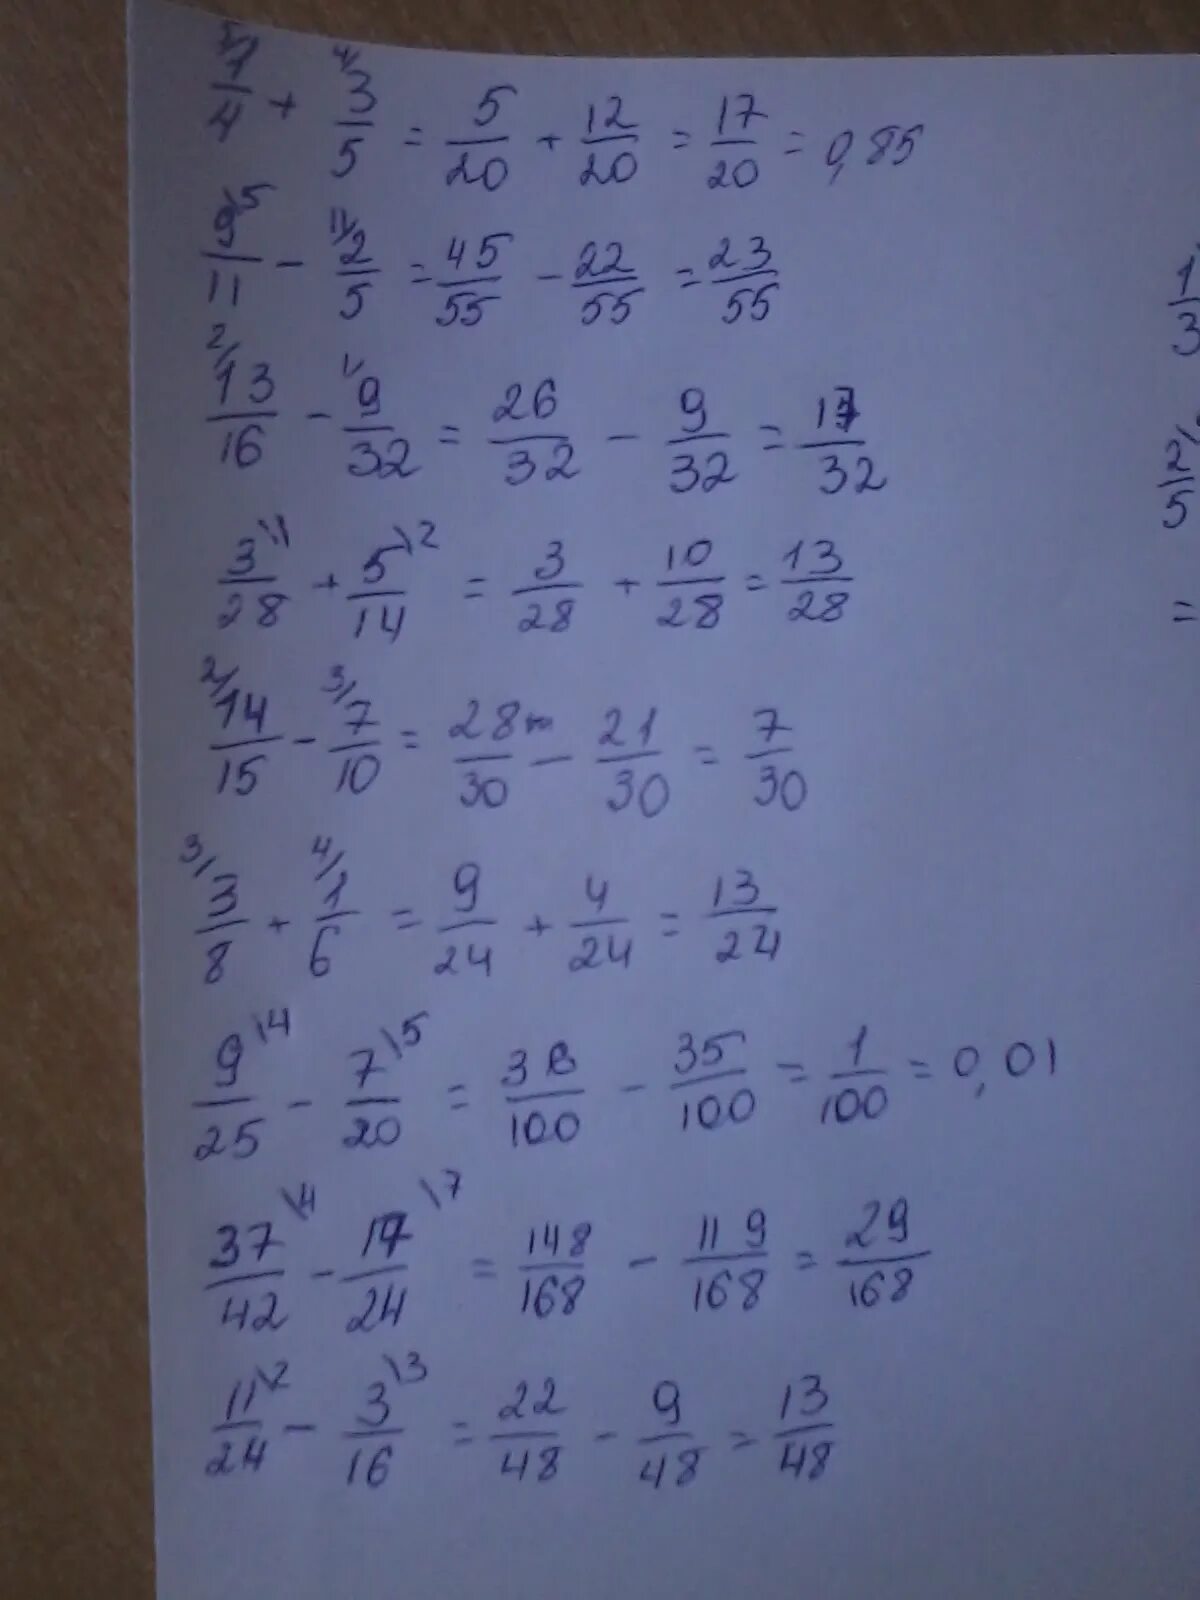 5/ 1/4 + 4/ 3/5 = 5/20 + 12/20 = 17/20 = 0,85
9/11 \5 - 11\ 2/5 = 45/55 - 22/55 = 23/55
2/ 13/16 - 1/ 9/32 = 26/32 - 9/32 = 17/32
3/28 \1 + 5/14 \2 = 3/28 + 10/28 = 13/28
2/ 14/15 - 3/ 7/10 = 28/30 - 21/30 = 7/30
3/ 3/8 + 4/ 1/6 = 9/24 + 4/24 = 13/24
9/25 \4 - 7/20 \5 = 36/100 - 35/100 = 1/100 = 0,01
37/42 \4 - 17/24 \7 = 148/168 - 119/168 = 29/168
11/24 \2 - 3/16 \3 = 22/48 - 9/48 = 13/48
1/3
2/5
=